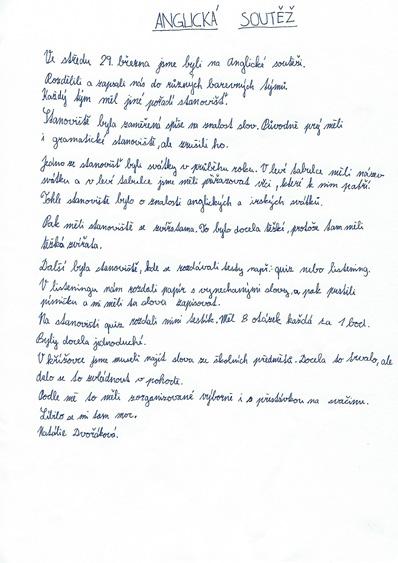 ANGLICKÁ SOUTĚŽ
Ve středu 29. března jsme byli na Anglické soutěži.
Rozdělili a zapsali nás do různých barevných týmů.
Každý tým měl jiné pořadí stanovišť.
Stanoviště byla zaměřená spíše na znalost slov. Původně prý měli
i gramatické stanoviště, ale zrušili ho.
Jedno ze stanovišť byli svátky v průběhu roku. V levé tabulce měli název
svátku a v levé tabulce jsme měli přiřazovat věci, které k nim patří.
Tohle stanoviště bylo o znalosti anglických a irských svátků.
Pak měli stanoviště se zvířatama. To bylo docela těžké, protože tam měli
těžká zvířata.
Další byla stanoviště, kde se rozdávali testy např: quiz nebo listening.
V listeningu nám rozdali papír s vynechanými slovy, a pak pustili
písničku a mi měli ta slova zapisovat.
Na stanovišti quiz rozdali mini testík. Měl 8 otázek každá za 1 bod.
Byly docela jednoduché.
V křížovce jsme museli najít slova ze školních předmětů. Docela to trvalo, ale
dalo se to zvládnout v pohodě.
Podle mě to měli zorganizované výborně i s přestávkou na svačinu.
Líbilo se mi tam moc.
Natálie Dvořáková.